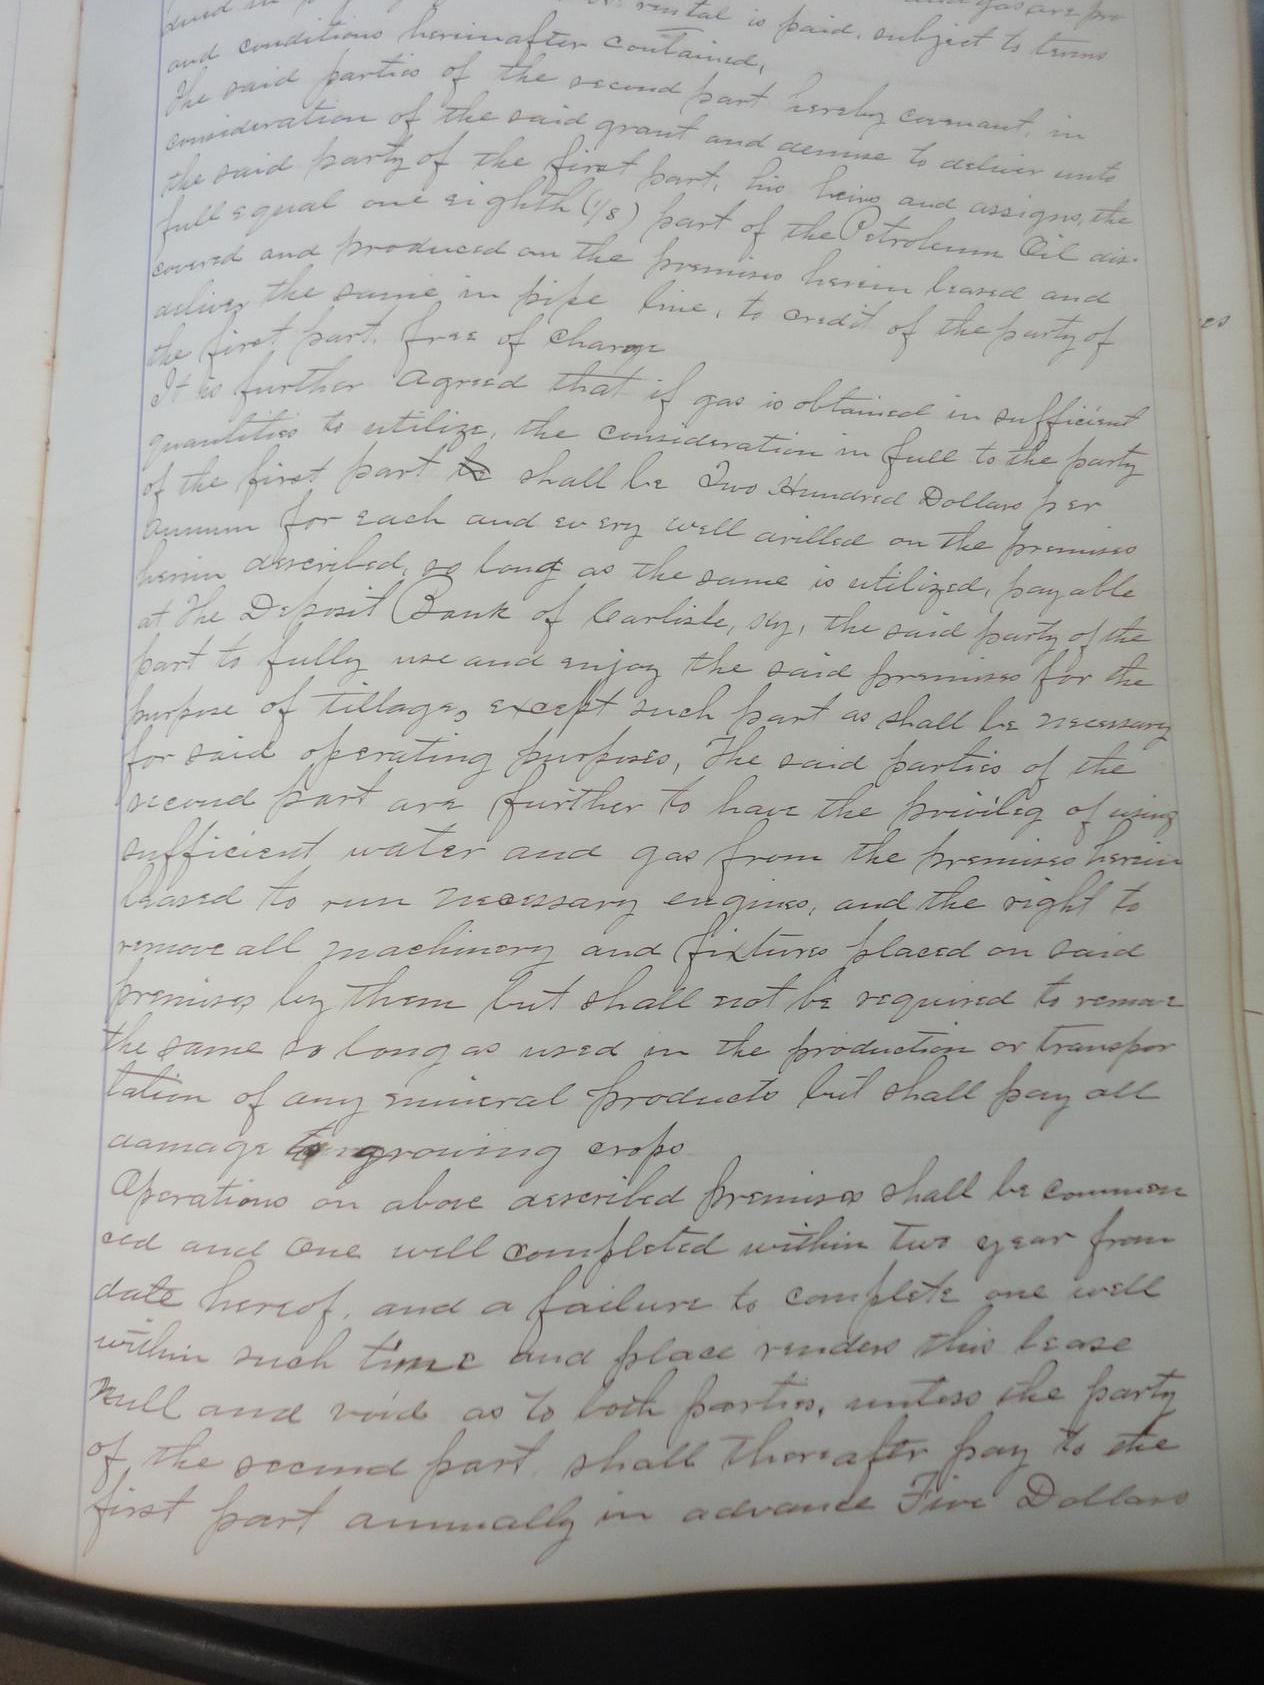 rental is paid, subject to terms
and conditions hereinafter contained,
The said parties of the second part hereby covenant, in
consideration of the said grant and demise to deliver unto
the said party of the first part, his heirs and assigns, the
full equal one eighth (1/8) part of the Petroleum Oil dis-
covered and produced on the premises herein leased and
deliver the same in pipe line, to credit of the party of
the first part, free of charge
It is further agreed that if gas is obtained in sufficient
quantities to utilize, the consideration in full to the party
of the first part shall be Two Hundred Dollars per
annum for each and every well drilled on the premises
herein described, so long as the same is utilized, payable
at The Deposit Bank of Carlisle, Ky, the said party of the
part to fully use and enjoy the said premises for the
purpose of tillage, except such part as shall be necessary
for said operating purposes, The said parties of the
second part are further to have the privileg of using
sufficient water and gas from the premises herein
leased to run necessary engines, and the right to
remove all machinery and fixtures placed on said
premises by them but shall not be required to remove
the same so long as used in the production or transpor
tation of any mineral products but shall pay all
damage to growing crops
Operations on above described premises shall be commen
ced and one well completed within two year from
date hereof, and a failure to complete one well
within such time and place renders this lease
null and void as to both parties, unless the party
of the second part shall thereafter pay to the
first part annually in advance Five Dollars